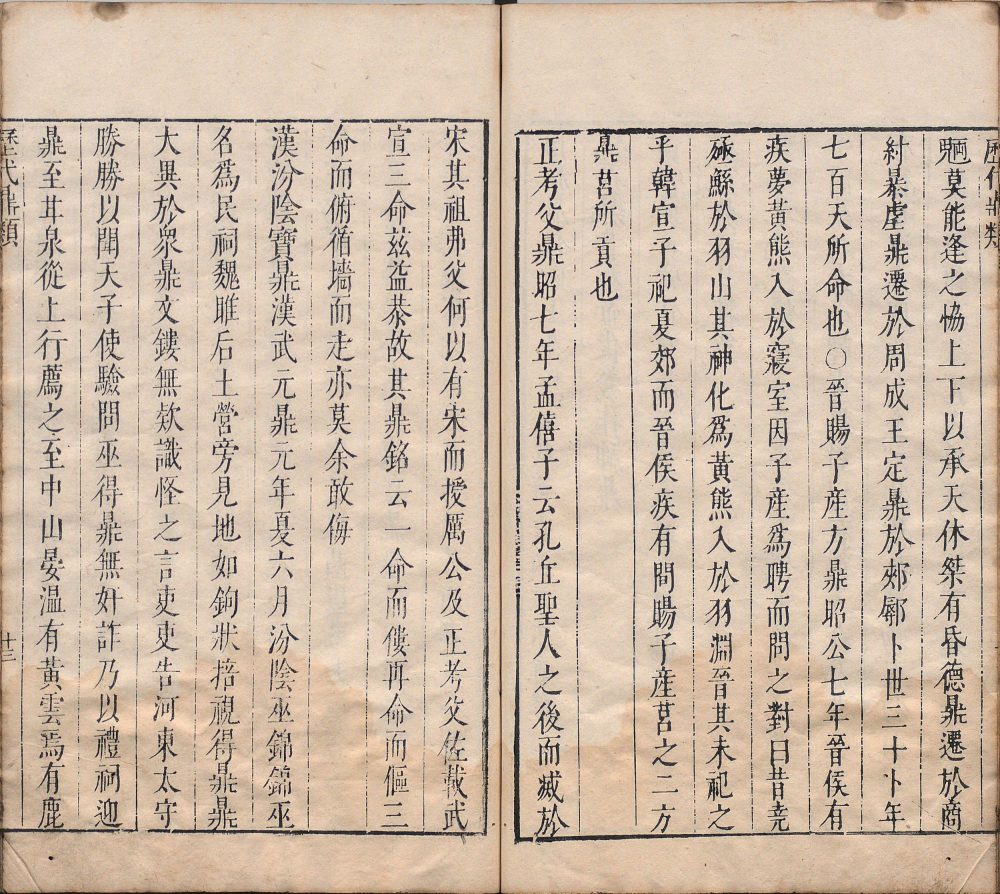 歷代鼎類
魍莫能逢之恊上下以承天休桀有昏德鼎遷於商
紂暴虐鼎遷於周成王定鼎於郟鄏卜世三十卜年
七百天所命也〇晉賜子產方鼎昭公七年晉侯有
疾夢黃熊入於寢室因子產爲聘而問之對曰昔堯
殛鯀於羽山其神化爲黃熊入於羽淵晉其未祀之
乎韓宣子祀夏郊而晉侯疾有間賜子產莒之二方
鼎莒所貢也
正考父鼎昭七年孟僖子云孔丘聖人之後而滅於
宋其祖弗父何以有宋而授厲公及正考父佐戴武
宣三命茲益恭故其鼎銘云一命而僂再命而傴三
命而俯循墻而走亦莫余敢侮
漢汾陰寶鼎漢武元鼎元年夏六月汾陰巫錦錦巫
名爲民祠魏脽后土營旁見地如鉤狀掊視得鼎鼎
大異於衆鼎文鏤無欵識怪之言吏吏告河東太守
勝勝以聞天子使驗問巫得鼎無奸詐乃以禮祠迎
鼎至甘泉從上行薦之至中山晏溫有黃雲焉有鹿
歷代鼎類
十三